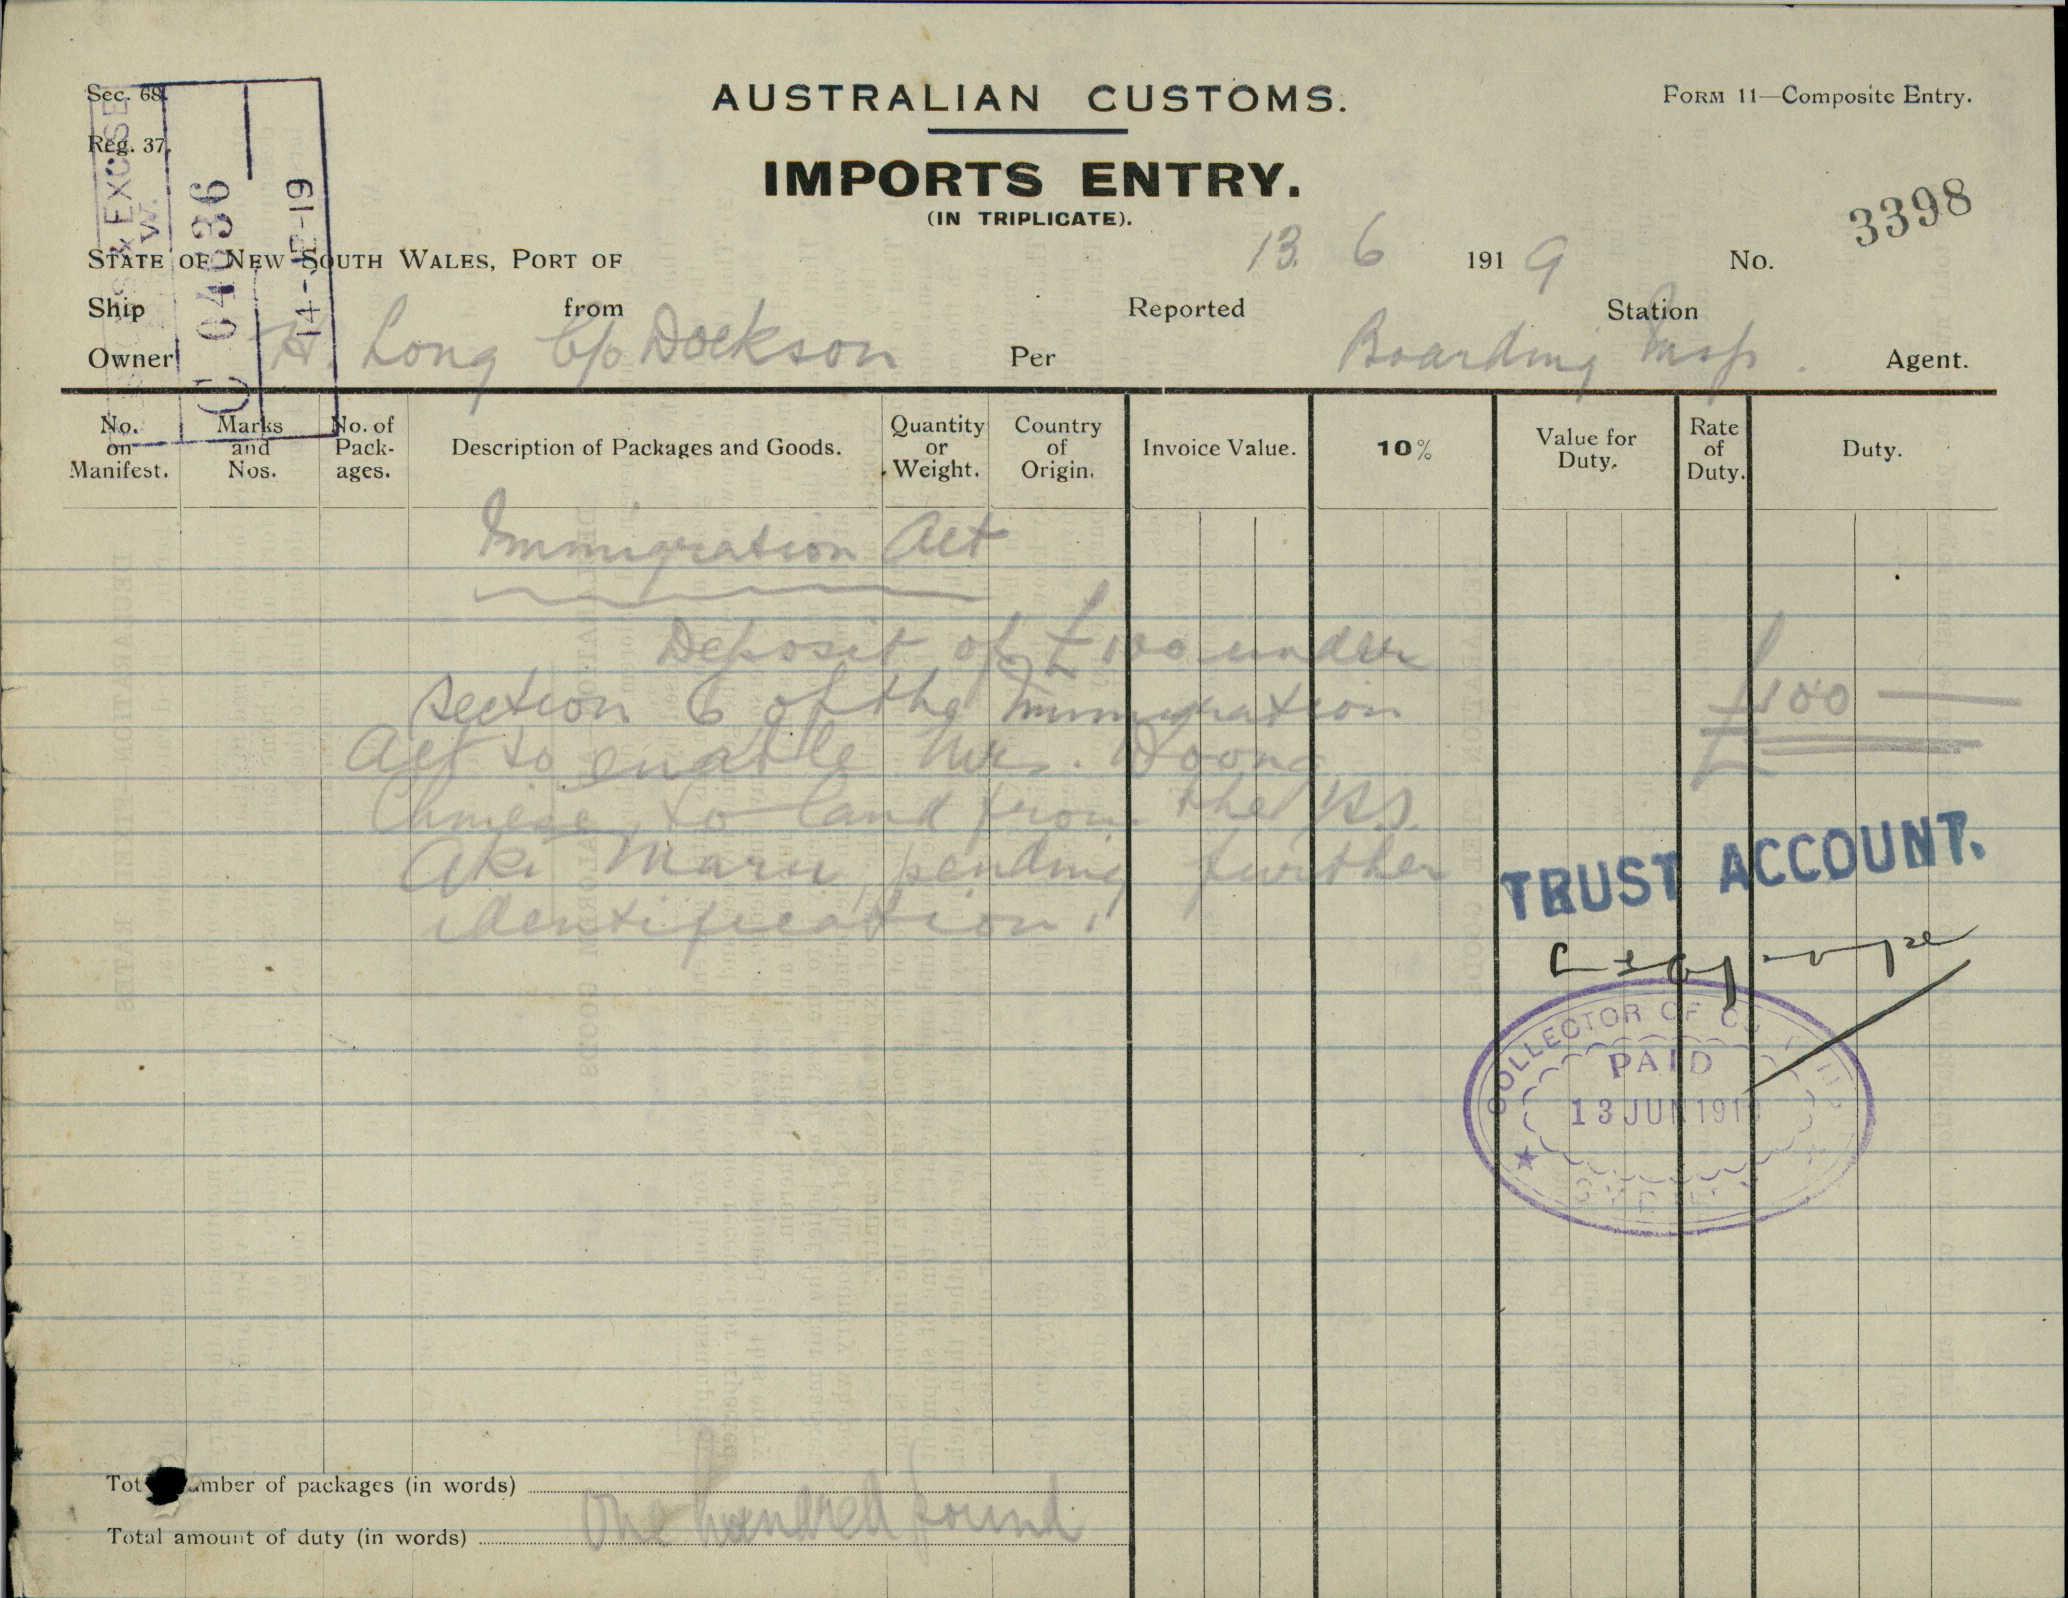 Sec. 68.
Reg. 37.
AUSTRALIAN CUSTOMS.
FORM 11—Composite Entry.
IMPORTS ENTRY.
(IN TRIPLICATE).
3398
& EXCISE
W.
14-
-19
STATE OF NEW SOUTH WALES, PORT OF 13. 6 1919 No.
Ship from Reported Station
Owner H. Long C/o Dockson Per Boarding Insp. Agent.
No. on Manifest.
Marks and Nos.
No. of Pack- ages.
Description of Packages and Goods.
Quantity or Weight.
Country of Origin.
Invoice Value.
10%
Value for Duty.
Rate of Duty.
Duty.
Immigration Act
Deposit of £100 under
section 6 of the Immigration £100
Act to enable Mrs. Hoong
Chinese, to land from the ss.
Aki Maru, pending further
identification.
TRUST ACCOUNT.
COLLECTOR OF
PAID
13 JUN 191
Tot umber of packages (in words)
Total amount of duty (in words) One hundred pound